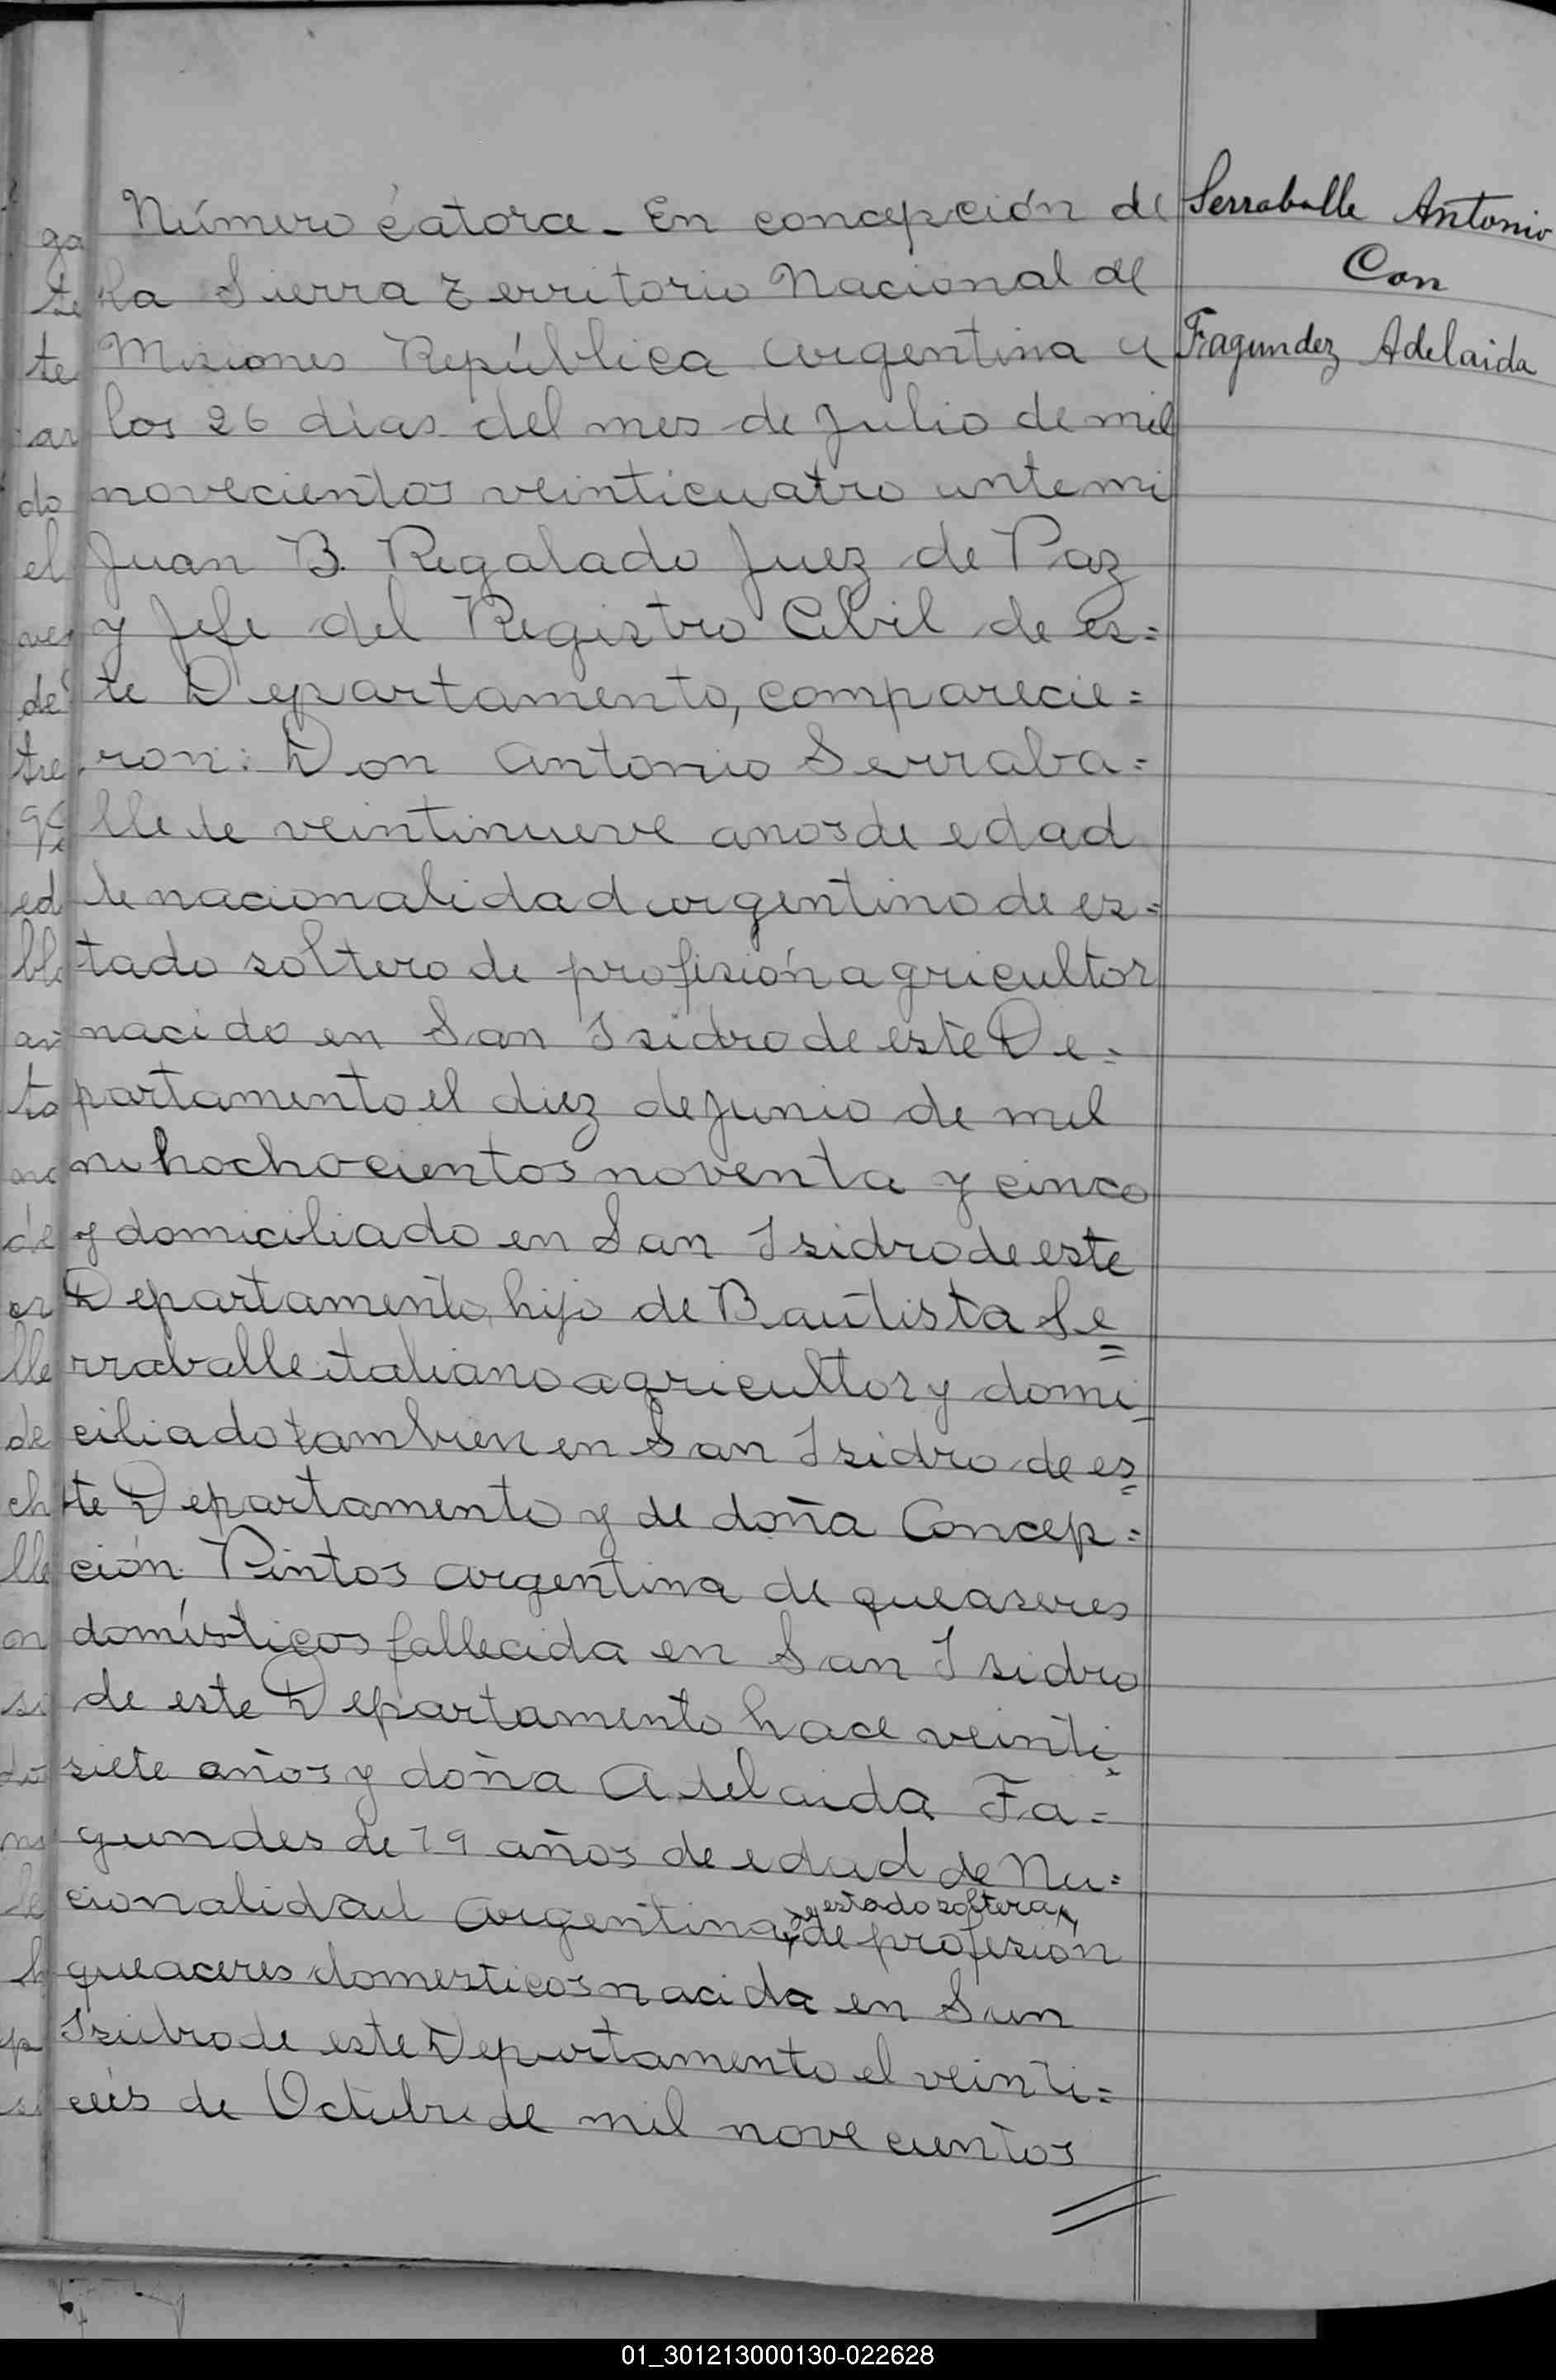 Número catorce. En concepción de
la Sierra Territorio Nacional de
Misiones República Argentina a
los 26 días del mes de Julio de mil
novecientos veinticuatro ante mi
Juan B. Regalado Juez de Paz
y Jefe del Registro Cibil de es=
te Departamento, comparecie=
ron: Don Antonio Serraba=
lle de veintinueve anos de edad
de nacionalidad argentino de es=
tado soltero de profisión agricultor
nacido en San Isidro de este De=
partamento el diez de junio de mil
hochocientos noventa y cinco
y domiciliado en San Isidro de este
Departamento, hijo de Bautista Se=
rraballe italiano agricultor y domi=
ciliado tambien en San Isidro de es=
te Departamento y de doña Concep=
ción Pintos argentina de queaseres
domésticos fallecida en San Isidro
de este Departamento hace veinti=
siete años y doña Adelaida Fa=
gundes de 19 años de edad de Na=
cionalidad Argentina, de estado soltera, de profesión
queaceres domesticos nacida en San
Isidro de este Departamento el veinti=
ceis de Octubre de mil novecientos
Serraballe Antonio
Con
Fagundez Adelaida
ga
te
te
ar
do
el
ves
de
tre
ed
ble
to
de
lle
de
ch
lle
on
si
01_301213000130-022628